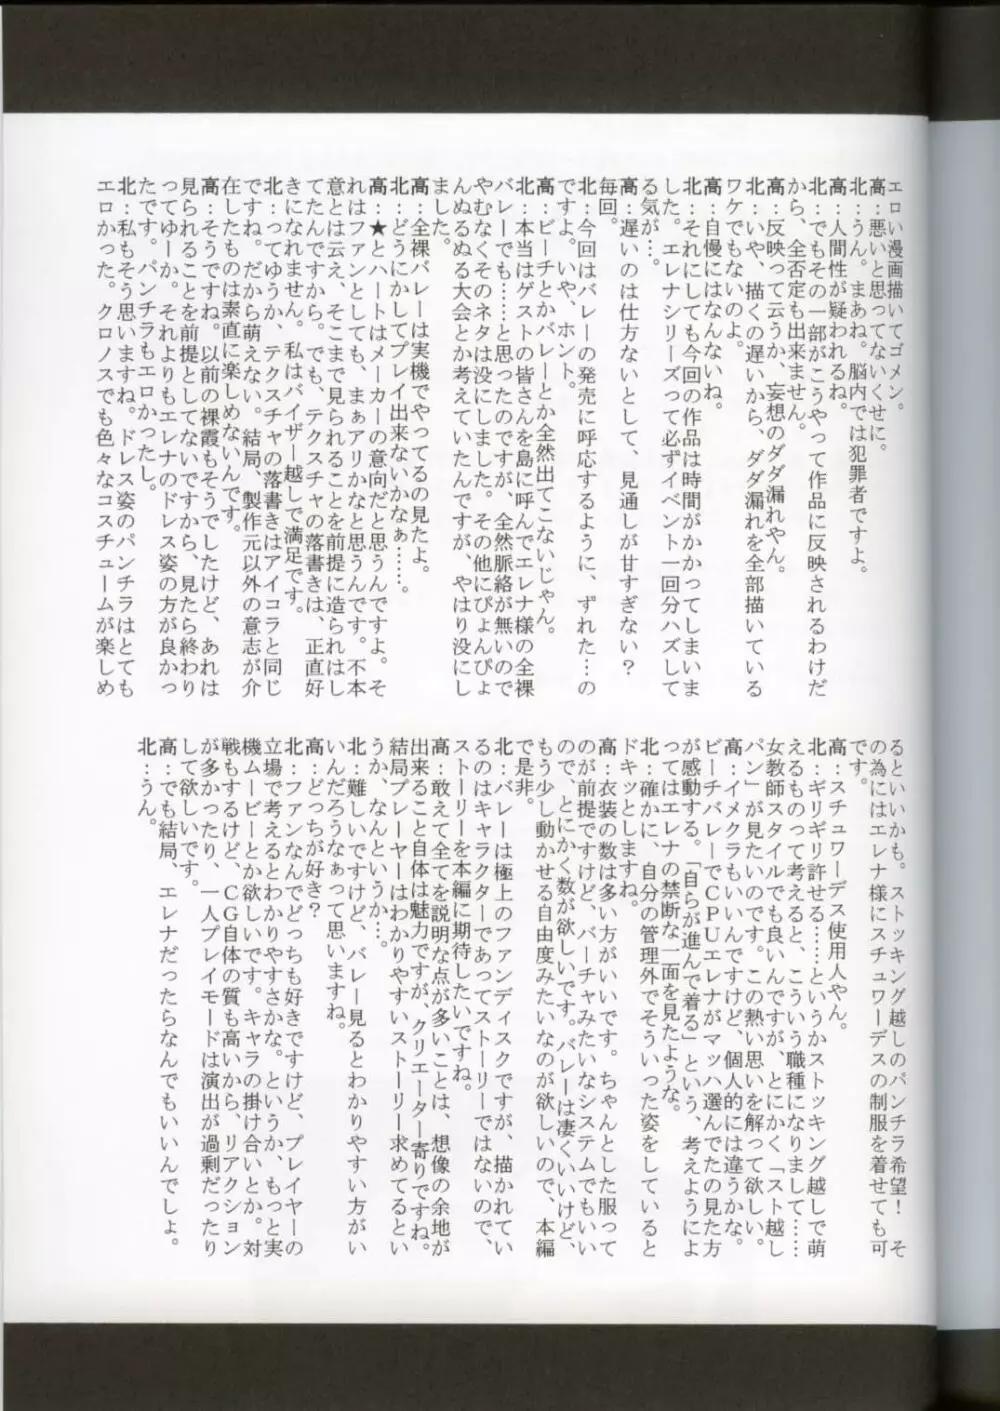 エロい漫画描いてゴメン。
高：悪いと思ってないくせに。
北：うん。まあね。脳内では犯罪者ですよ。
高：人間性が疑われるね。
北：でもその一部がこうやって作品に反映されるわけだ
から、全否定も出来ません。
高：反映って云うか、妄想のダダ漏れやん。
北：いや、描くの遅いから、ダダ漏れを全部描いている
ワケでもないのよ。
高：自慢にはなんないね。
北：それにしても今回の作品は時間がかかってしまいま
した。エレナシリーズって必ずイベント一回分ハズして
る気が…。
高：遅いのは仕方ないとして、見通しが甘すぎない？
毎回。
北：今回はバレーの発売に呼応するように、ずれた…の
ですよ。いや、ホント。
高：ビーチとかバレーとか全然出てこないじゃん。
北：本当はゲストの皆さんを島に呼んでエレナ様の全裸
バレーでも……と思ったのですが、全然脈絡が無いので
やむなくそのネタは没にしました。その他にぴょんぴょ
んぬるぬる大会とか考えていたんですが、やはり没にし
ました。
高：全裸バレーは実機でやってるの見たよ。
北：どうにかしてプレイ出来ないかなぁ……。
高：★とハートはメーカーの意向だと思うんですよ。そ
れはファンとしても、まぁアリかなと思うんです。不本
意とは云え、そこまで見られることを前提に造られはし
てたんですから。でも、テクスチャの落書きは、正直好
きになれません。私はバイザー越しで満足です。
北：ってゆうか、テクスチャの落書きはアイコラと同じ
ですね。だから萌えない。結局、製作元以外の意志が介
在したものは素直に楽しめないんです。
高：そうですね。以前の裸霞もそうでしたけど、あれは
見られることを前提としてないですから、見たら終わり
ってゆーか。それよりもエレナのドレス姿の方が良かっ
たです。パンチラもエロかったし。
北：私もそう思いますね。ドレス姿のパンチラはとても
エロかった。クロノスでも色々なコスチュームが楽しめ
るといいかも。ストッキング越しのパンチラ希望！　そ
の為にはエレナ様にスチュワーデスの制服を着せても可
です。
高：スチュワーデス使用人やん。
北：ギリギリ許せる……というかストッキング越しで萌
えるものって考えると、こういう職種になりまして……
女教師スタイルでも良いんですが、とにかく「スト越し
パン」が見たいのです。この熱い思いを解って欲しい。
高：イメクラもいいんですけど、個人的には違うかな。
ビーチバレーでＣＰＵエレナがマッハ選んでたの見た方
が感動する。「自らが進んで着る」という、考えようによ
ってはエレナの禁断な二面を見たような。
北：確かに、自分の管理外でそういった姿をしていると
ドキッとしますね。
高：衣装の数は多い方がいいです。ちゃんとした服って
のが前提ですけど、バーチャみたいなシステムでもいい
ので、とにかく数が欲しいです。バレーは凄くいいけど、
もう少し動かせる自由度みたいなのが欲しいので、本編
で是非。
北：バレーは極上のファンディスクですが、描かれてい
るのはキャラクターであってストーリーではないので、
ストーリーを本編に期待したいですね。
高：敢えて全てを説明な点が多いことは、想像の余地が
出来ること自体は魅力ですが、クリエーター寄りですね。
結局プレーヤーはわかりやすいストーリー求めてるとい
うか、なんというか…。
北：難しいですけど、バレー見るとわかりやすい方がい
いんだろうなぁって思いますね。
高：どっちが好き？
北：ファンなんでどっちも好きですけど、プレイヤーの
立場で考えるとわかりやすさかな。というか、もっと実
機ムービーとか欲しいです。キャラの掛け合いとか。対
戦もするけど、ＣＧ自体の質も高いから、リアクション
が多かったり、一人プレイモードは演出が過剰だったり
して欲しいです。
高：でも結局、エレナだったらなんでもいいんでしょ。
北：うん。